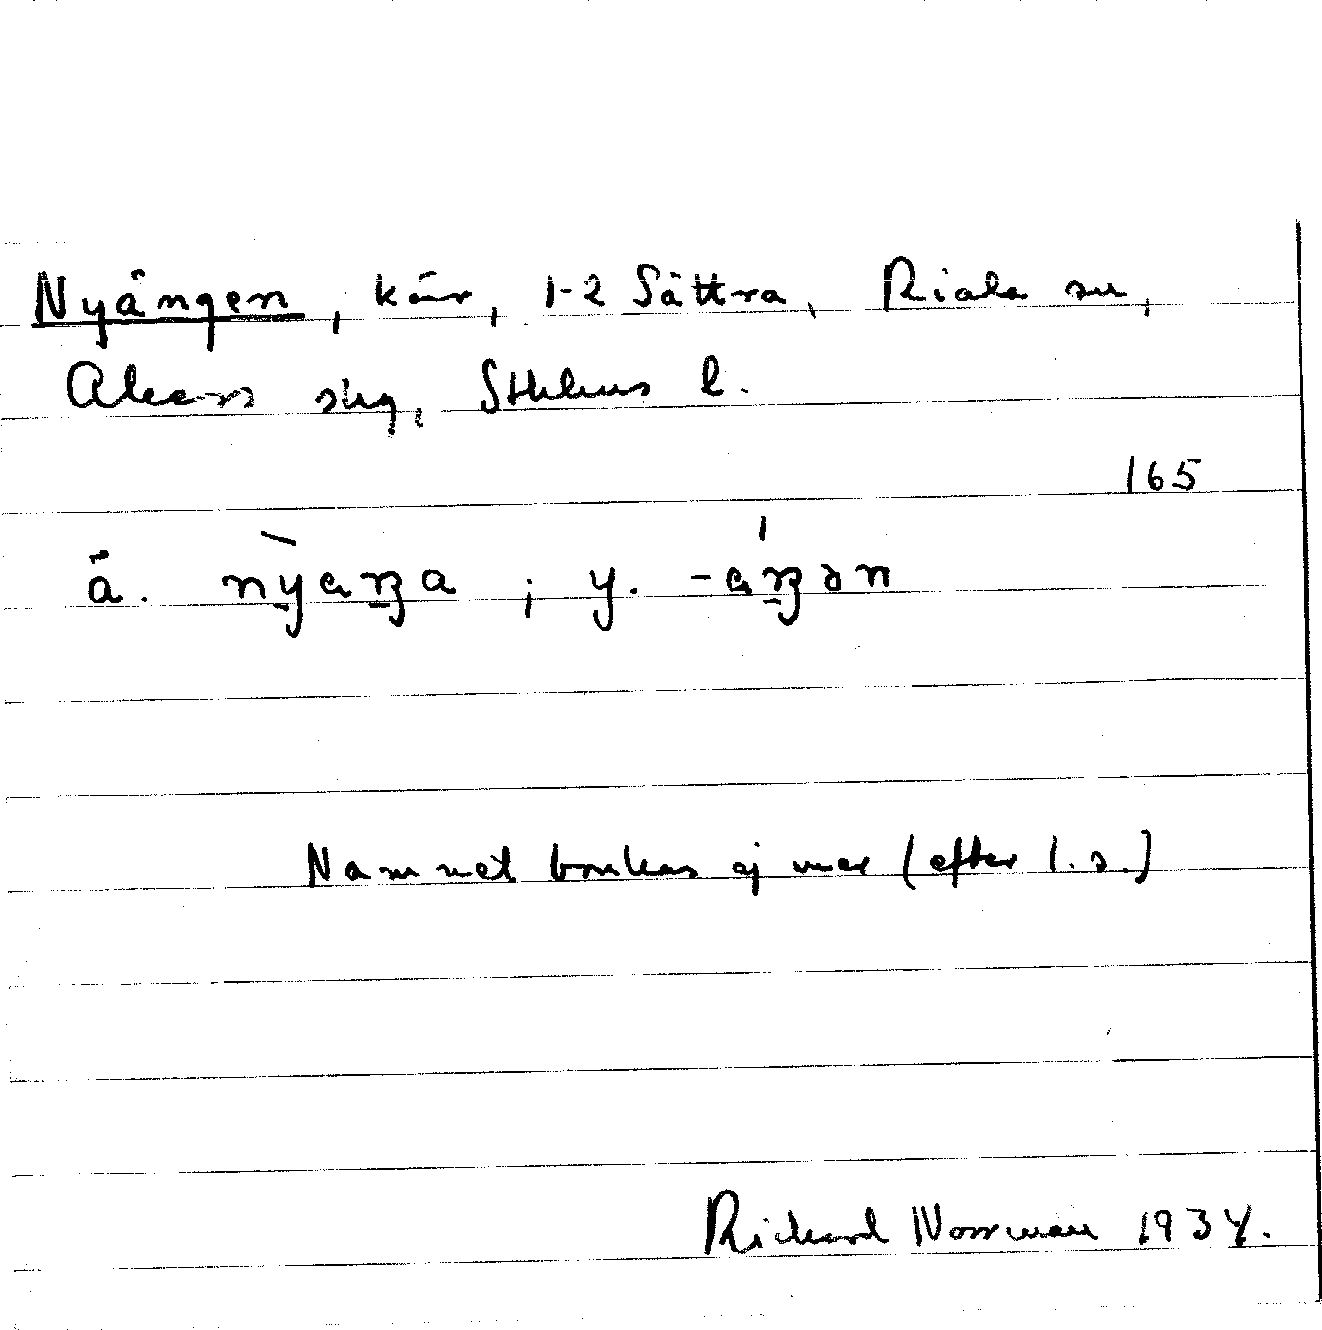 Nyängen, kärr, 1-2 Sättra, Riala sn,
Åkers skg, Sthlms l.
165
ä. nỳaŋa ; y. -áŋən
Namnet brukas ej mer (efter l. s.)
Rickard Norrman 1934.